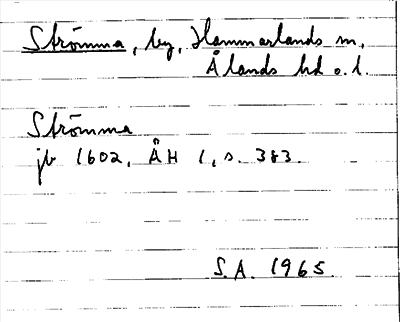 Strömma, by, Hammarlands sn,
Ålands hd o. l.
Strömma
jb 1602, ÅH 1, s. 383.
S.A. 1965.